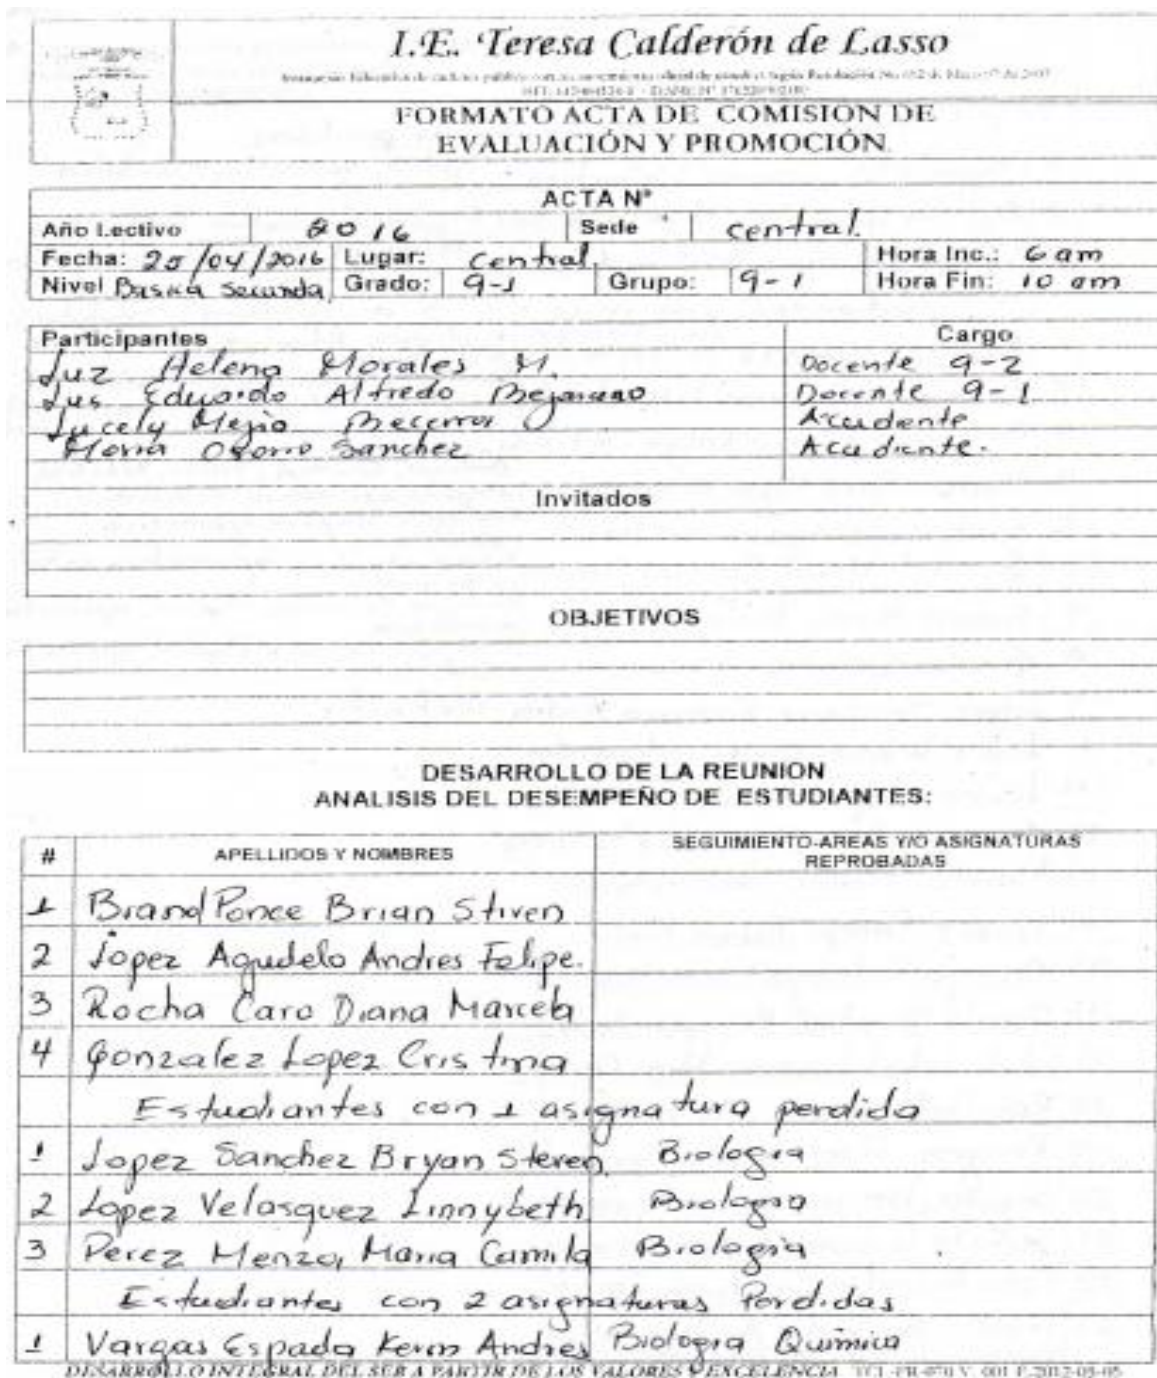 I.E. Teresa Calderón de Lasso
FORMATO ACTA DE COMISION DE
EVALUACIÓN Y PROMOCIÓN
ACTA Nº
Año Lectivo 2016 Sede central.
Fecha: 25/04/2016 Lugar: Central. Hora Inc.: 6 am
Nivel Basica Secunda Grado: 9-1 Grupo: 9-1 Hora Fin: 10 am
Participantes Cargo
Luz Helena Morales M. Docente 9-2
Luis Eduardo Alfredo Bejarano Docente 9-1
Lucely Mejia Becerra Acudiente
Maria Osorio Sanchez Acudiente.
Invitados
OBJETIVOS
DESARROLLO DE LA REUNION
ANALISIS DEL DESEMPEÑO DE ESTUDIANTES:
# APELLIDOS Y NOMBRES SEGUIMIENTO-AREAS Y/O ASIGNATURAS
REPROBADAS
1 Brand Ponce Brian Stiven
2 Lopez Agudelo Andres Felipe.
3 Rocha Caro Diana Marcela
4 Gonzalez Lopez Cristina
Estudiantes con 1 asignatura perdida
1 Lopez Sanchez Bryan Steven Biologia
2 Lopez Velasquez Linnybeth Biologia
3 Perez Menza Maria Camila Biologia
Estudiantes con 2 asignaturas Perdidas
1 Vargas Espada Kevin Andres Biologia Quimica
DESARROLLO INTEGRAL DEL SER A PARTIR DE LOS VALORES Y EXCELENCIA